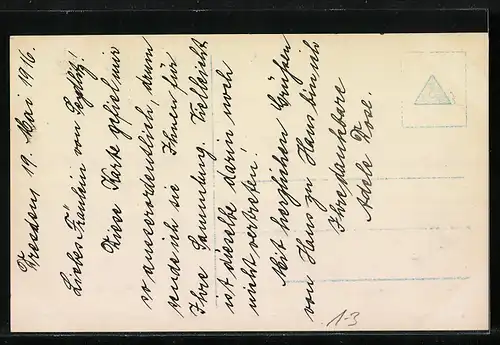 Dresden 19. Mai 1916.
Liebes Fräulein von Seydlitz!
Diese Karte gefiel mir
so ausserordentlich, denn
sende ich sie Ihnen für
Ihre Sammlung. Vielleicht
ist dieselbe darin noch
nicht vertreten.
Mit herzlichen Grüßen
von Haus zu Haus bin ich
Ihre dankbare
Adele Dose.
1-3